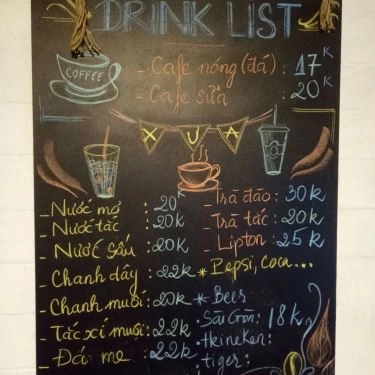 DRINK LIST
COFFEE
- Cafe nóng (đá) : 17K
- Cafe sữa : 20K
XUA
- Nước mơ : 20K
- Nước tắc : 20k
- Nước Sấu : 20K
- Chanh dây : 22k
- Chanh muối : 20k
- Tắc xí muối : 22k
- Đá me : 22k
- Trà đào : 30k
- Trà tắc : 20k
- Lipton : 25k
* Pepsi, Coca...
* Beer
Sài Gòn : 18k
. Heineken :
. tiger :